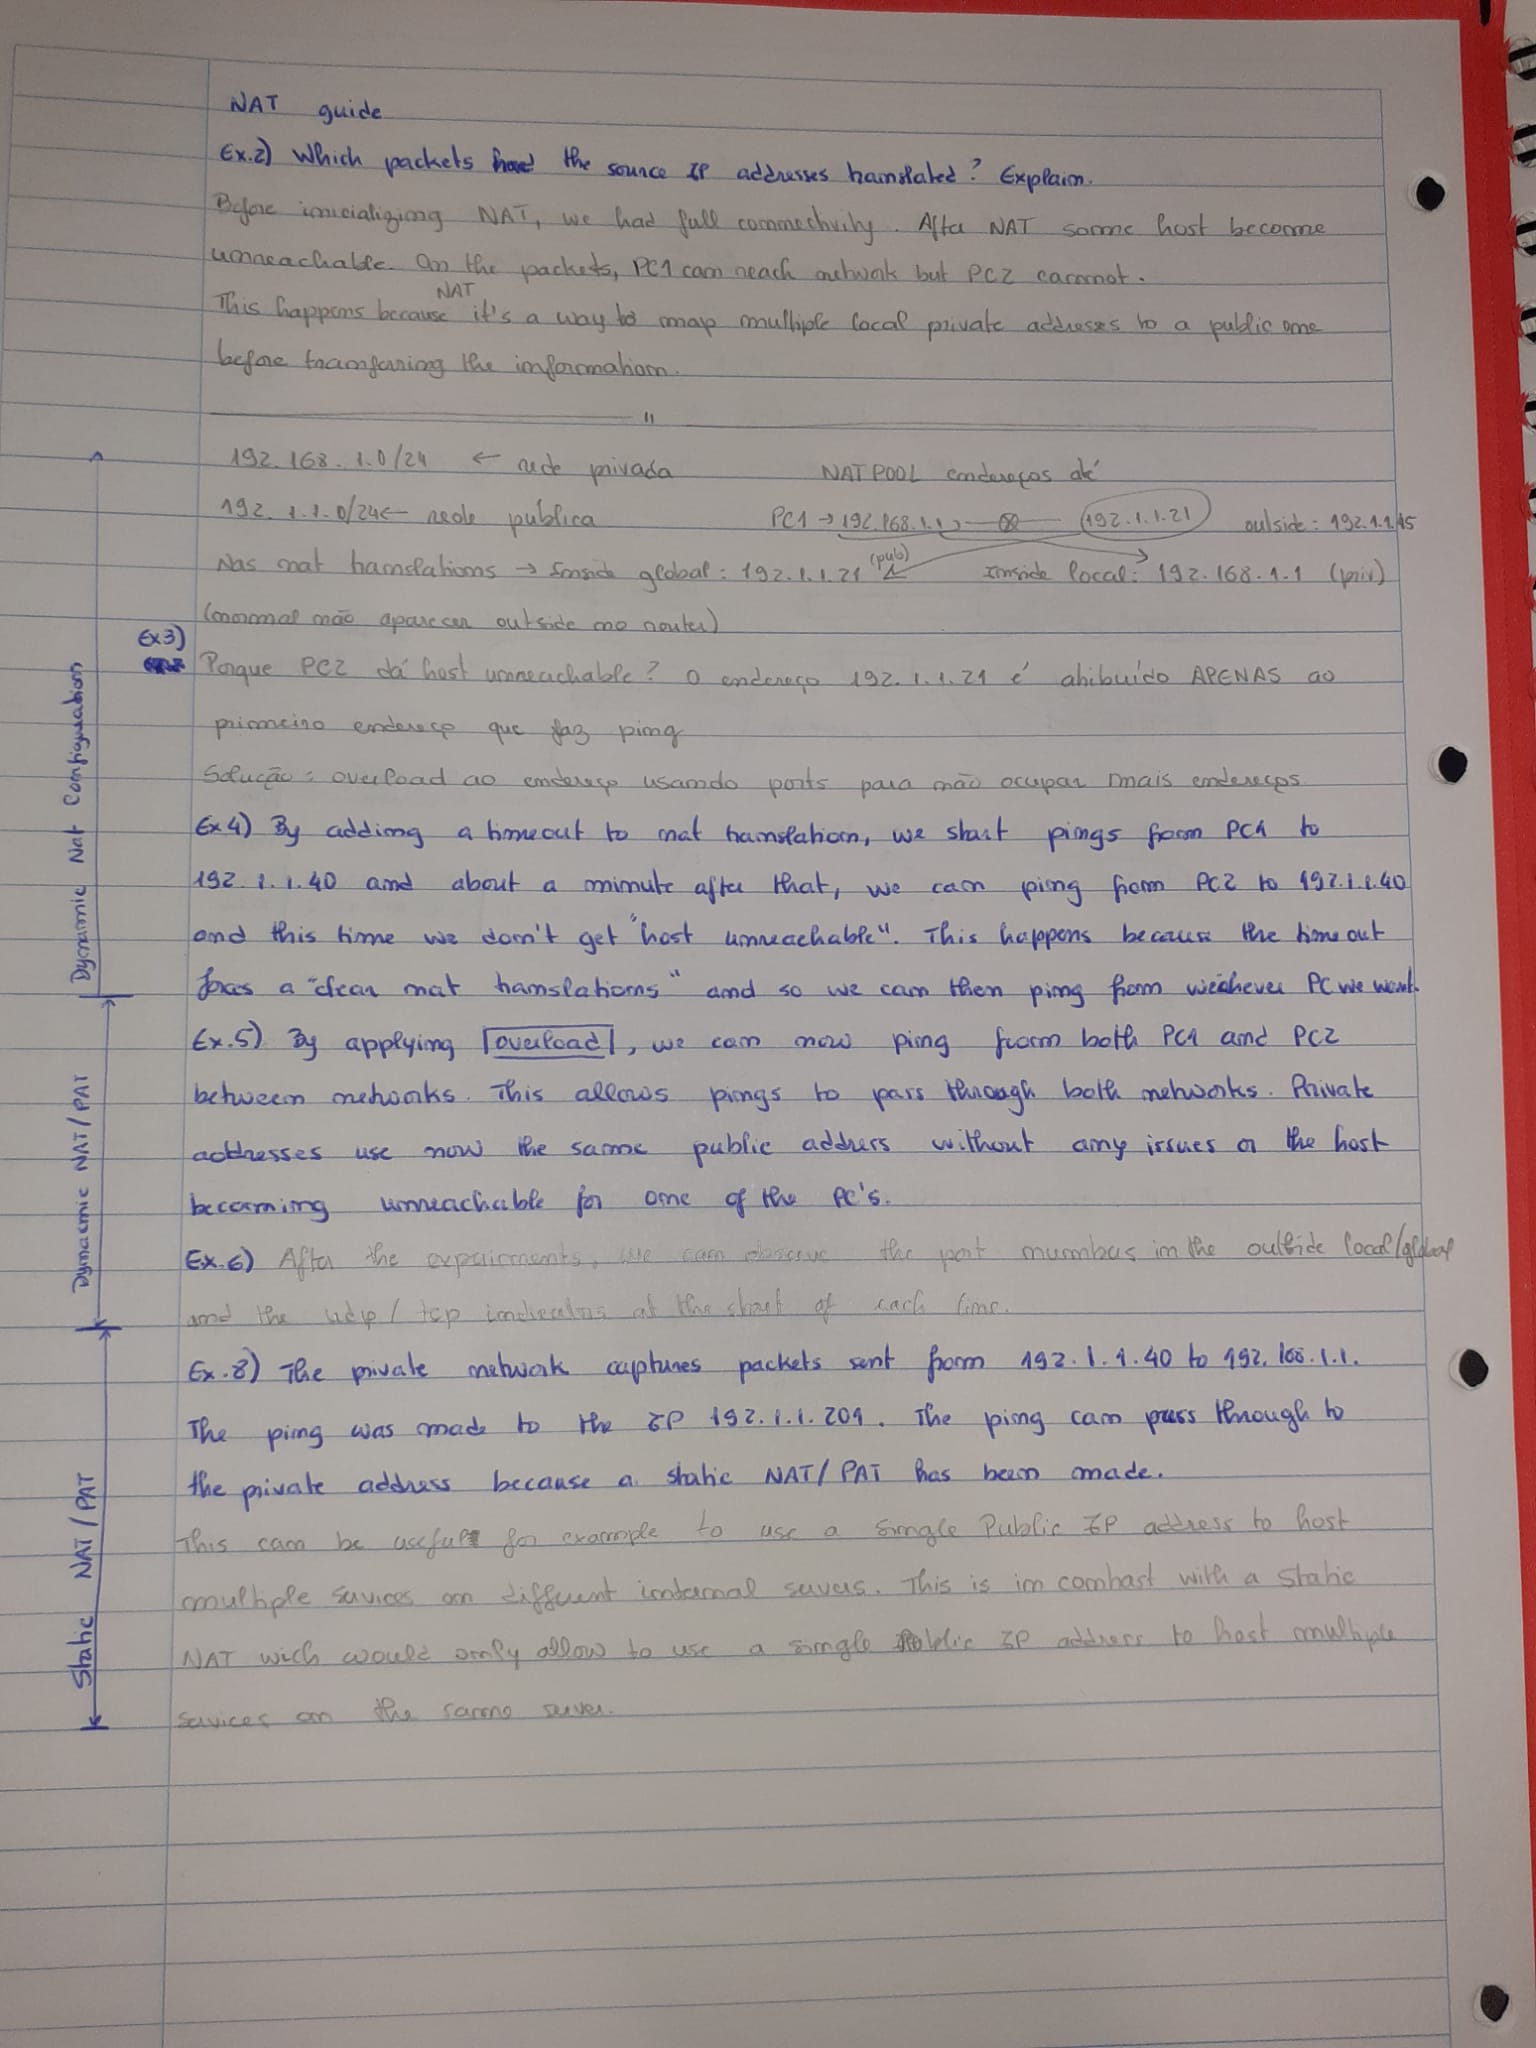 NAT guide
Ex.2) Which packets had the source IP addresses translated? Explain.
Before inicializing NAT, we had full connectivity. After NAT some host become
unreachable. On the packets, PC1 can reach network but PC2 cannot.
This happens because NAT it's a way to map multiple local private addresses to a public one
before transfering the information.
192.168.1.0/24 ← rede privada NATPOOL endereços até
192.1.1.0/24 ← rede publica PC1 → 192.168.1.1 192.1.1.21 outside: 192.1.1.45
Nas nat translations → Inside global: 192.1.1.21 (pub) Inside local: 192.168.1.1 (priv)
(normal não aparecer outside no router)
Ex3)
Porque PC2 dá host unreachable? O endereço 192.1.1.21 é atribuído APENAS ao
primeiro endereço que faz ping
Solução: overload ao endereço usando ports para não ocupar mais endereços
Ex4) By adding a timeout to nat translation, we start pings from PC1 to
192.1.1.40 and about a minute after that, we can ping from PC2 to 192.1.1.40
and this time we don't get "host unreachable". This happens because the timeout
forces a "clear nat translations" and so we can then ping from wichever PC we want.
Ex.5) By applying overload, we can now ping from both PC1 and PC2
between networks. This allows pings to pass through both networks. Private
addresses use now the same public address without any issues or the host
becoming unreachable for one of the PC's.
Ex.6) After the expairments, we can observe the port numbers in the outside local/global
and the udp/tcp indicators at the start of each line.
Ex.8) The private network captures packets sent from 192.1.1.40 to 192.168.1.1.
The ping was made to the IP 192.1.1.201. The ping can pass through to
the private address because a static NAT/PAT has been made.
This can be useful for example to use a single Public IP address to host
multiple services on different internal servers. This is in contrast with a Static
NAT wich would only allow to use a single Public IP address to host multiple
services on the same server.
Dynamic Nat Configuration
Dynamic NAT/PAT
Static NAT/PAT